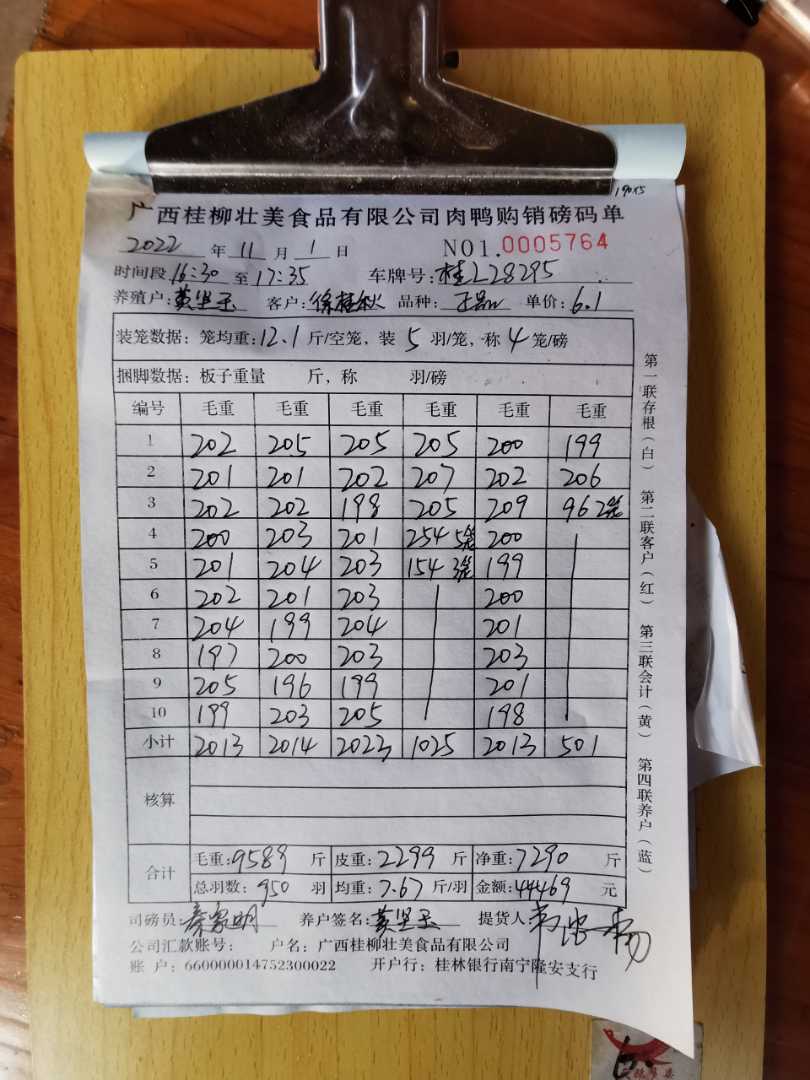 19015
广西桂柳壮美食品有限公司肉鸭购销磅码单
2022 年 11 月 1 日 NO1.0005764
时间段 16:30 至 17:35 车牌号: 桂L28295
养殖户: 黄坚玉 客户: 徐桂秋 品种: 正品 单价: 6.1
装笼数据: 笼均重: 12.1 斤/空笼, 装 5 羽/笼, 称 4 笼/磅
捆脚数据: 板子重量 斤, 称 羽/磅
编号 毛重 毛重 毛重 毛重 毛重 毛重
1 202 205 205 205 200 199
2 201 201 202 207 202 206
3 202 202 198 205 209 96 2笼
4 200 203 201 254 5笼 200
5 201 204 203 154 3笼 199
6 202 201 203 200
7 204 199 204 201
8 197 200 203 203
9 205 196 199 201
10 199 203 205 198
小计 2013 2014 2023 1025 2013 501
核算
合计 毛重: 9589 斤 皮重: 2299 斤 净重: 7290 斤
总羽数: 950 羽 均重: 7.67 斤/羽 金额: 44469 元
司磅员: 养户签名: 黄坚玉 提货人:
公司汇款账号: 户名: 广西桂柳壮美食品有限公司
账 户: 660000014752300022 开户行: 桂林银行南宁隆安支行
第一联存根(白) 第二联客户(红) 第三联会计(黄) 第四联养户(蓝)